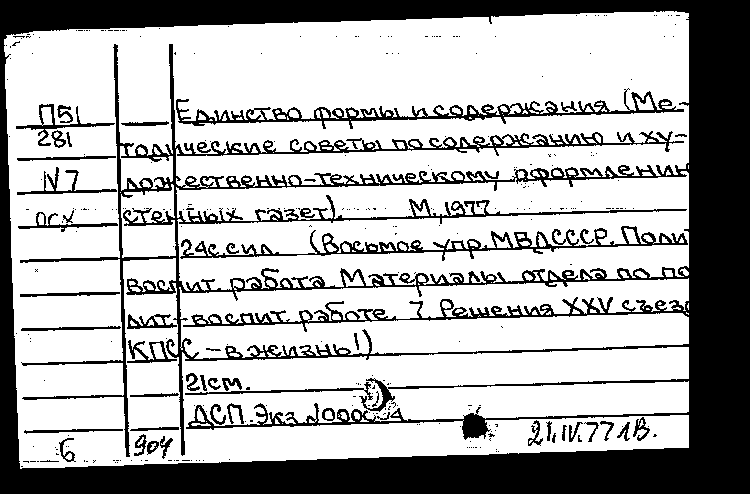 П51 Единство формы и содержания (Ме-
281 тодические советы по содержанию и ху-
N7 дожественно-техническому оформлению
осх стенных газет). М., 1977.
24с.с ил. (Восьмое упр. МВД СССР. Полит
воспит. работа. Материалы отдела по по
лит-воспит. работе. 7. Решения XXV съезд
КПСС – в жизнь!)
21см.
ДСП. Экз.
6 904 21.IV.77 1В.